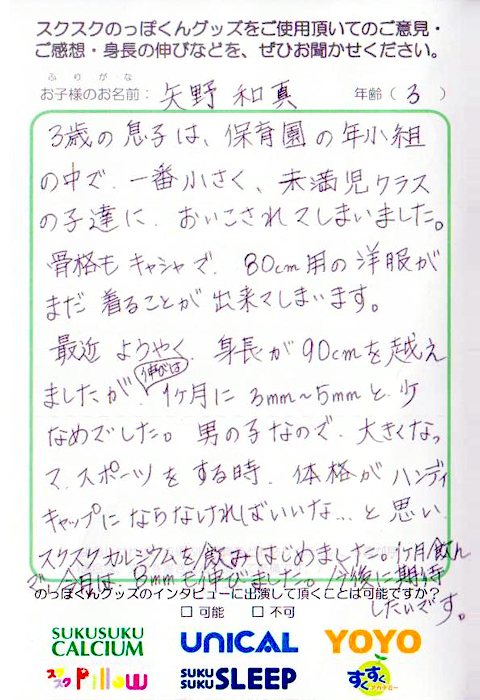 スクスクのっぽくんグッズをご使用頂いてのご意見・
ご感想・身長の伸びなどを、ぜひお聞かせください。
ふりがな
お子様のお名前： 矢野 和真 年齢（ 3 ）
3歳の息子は、保育園の年小組
の中で、一番小さく、未満児クラス
の子達に、おいこされてしまいました。
骨格もキャシャで、80cm用の洋服が
まだ着ることが出来てしまいます。
最近 ようやく、身長が90cmを越え
ましたが、伸びは 1ヶ月に 3mm~5mmと、少
なめでした。男の子なので、大きくなっ
て、スポーツをする時、体格がハンディ
キャップにならなければいいな…と思い、
スクスクカルシウムを飲みはじめました。1ヶ月飲ん
で、今月は、8mmも伸びました。今後に期待
したいです。
のっぽくんグッズのインタビューに出演して頂くことは可能ですか？
□ 可能 □ 不可
SUKUSUKU CALCIUM UNICAL YOYO
スクスク Pillow SUKU SUKU SLEEP すくすくアカデミー